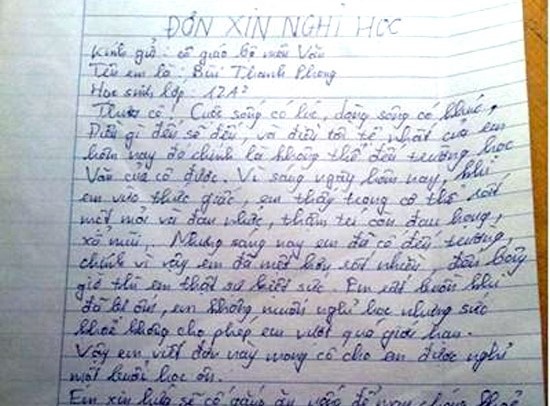 ĐƠN XIN NGHỈ HỌC
Kính gửi: cô giáo bộ môn Văn
Tên em là: Bùi Thanh Phong
Học sinh lớp: 12A2
Thưa cô! Cuộc sống có lúc, dòng sông có khúc,
Điều gì đến sẽ đến, và điều tồi tệ nhất của em
hôm nay đó chính là không thể đến trường học
Văn của cô được. Vì sáng ngày hôm nay, khi
em vừa thức giấc, em thấy trong cơ thể rất
mệt mỏi và đau nhức, thậm trí còn đau họng,
xổ mũi, Nhưng sáng nay em đã có đến trường,
chính vì vậy em đã mệt hơn rất nhiều, đến bây
giờ thì em thật sự kiệt sức. Em rất buồn khi
đã bị ốm, em không muốn nghỉ học nhưng sức
khoẻ không cho phép em vượt quá giới hạn.
Vậy em viết đơn này mong cô cho em được nghỉ
một buổi học ôn.
Em xin hứa sẽ cố gắng ăn uống để